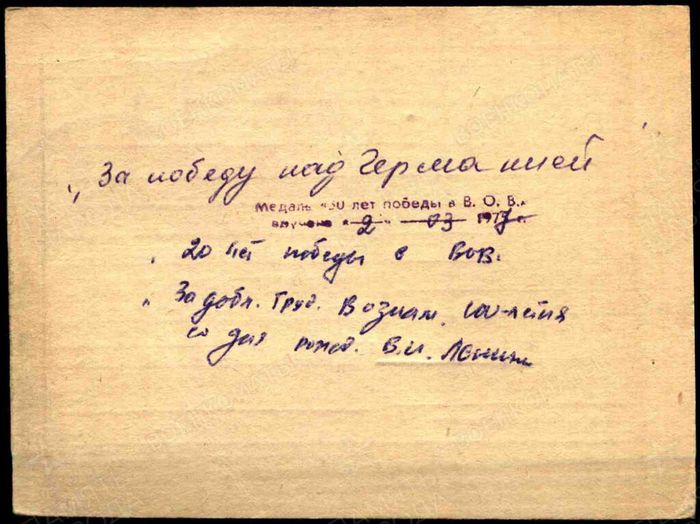 „За победу над Германией
Медаль «30 лет победы в В. О. В.»
вручена «2» 03 197
„ 20 лет победы в ВОВ.
„ За добл. труд. В ознам. 100-летия
со дня рожд. В.И. Ленина